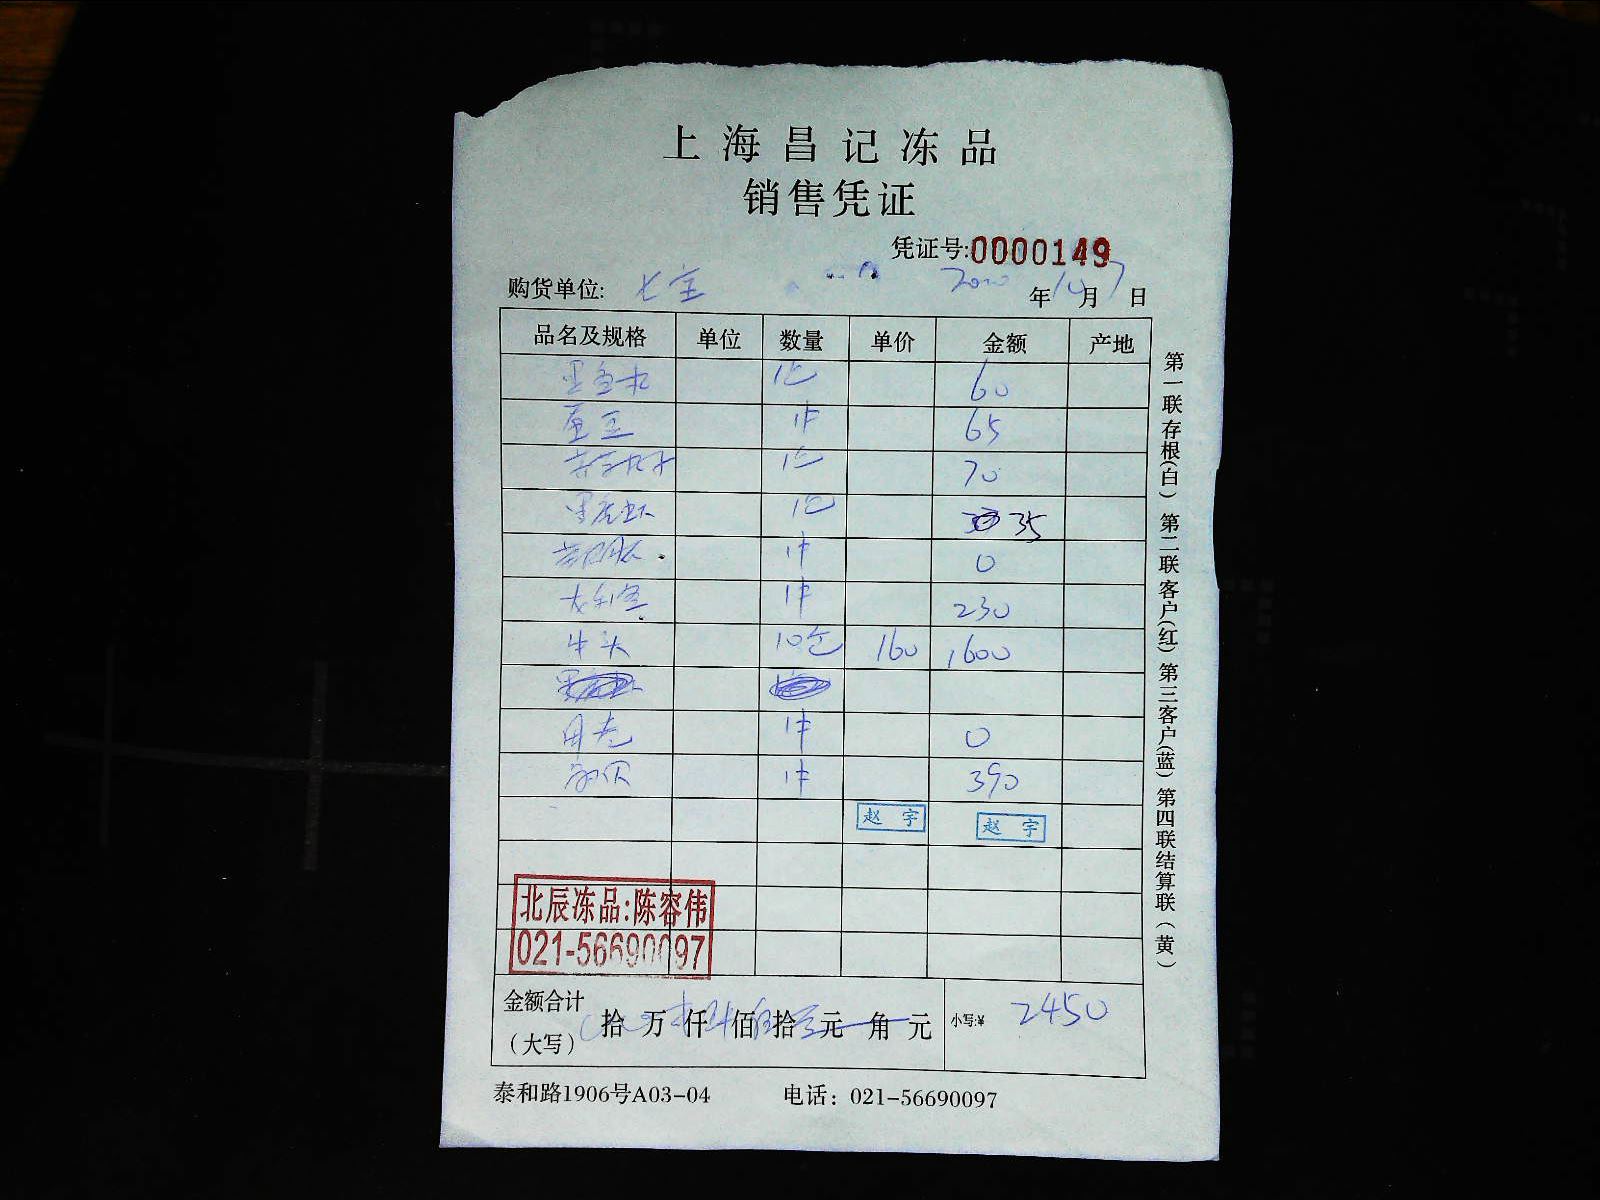 上海昌记冻品
销售凭证
凭证号:0000149
购货单位: 七宝 2020年10月7日
品名及规格 单位 数量 单价 金额 产地
1包 60
1件 65
1包 70
黑虎虾 1包 35
1件 0
1件 230
牛头 10包 160 1600
1件 0
1件 390
赵宇 赵宇
北辰冻品:陈容伟
021-56690097
金额合计
(大写) 拾 万 仟 佰 拾 元 角 元 小写:¥ 2450
泰和路1906号A03-04 电话: 021-56690097
第一联存根(白) 第二联客户(红) 第三客户(蓝) 第四联结算联(黄)